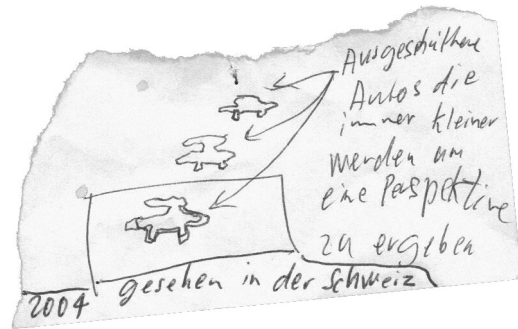 Ausgeschnittene
Autos die
immer kleiner
werden um
eine Perspektive
zu ergeben
2004 gesehen in der Schweiz